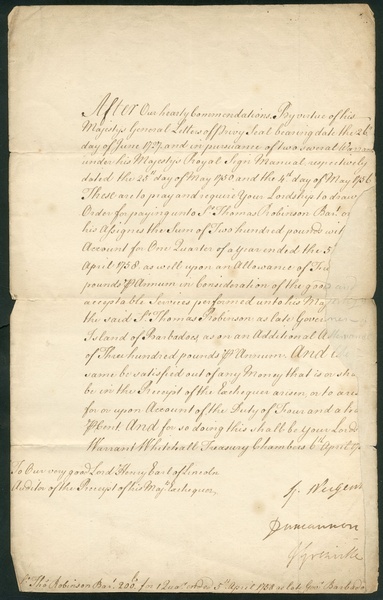 After Our hearty Commendations. By virtue of his
Majestys General Letters of Privy Seal bearing date the 26th
day of June 1727. and in pursuance of two several Warrants
under his Majestys Royal Sign Manual respectively
dated the 25th day of May 1750. and the 4th day of May
These are to pray and require Your Lordship to draw
Order for paying unto Sr Thomas Robinson Bart. or
his Assignes the Sum of Two hundred pounds with
Account for One Quarter of a year ended the 5
April 1758. as well upon an Allowance of
pounds Annum in Consideration of the good and
acceptable Services performed unto his
the said Sr Thomas Robinson as late Governor
Island of Barbadoes, as on an Additional Allowance
of Three hundred pounds Annum. And
same be satisfied out of any Money that is or
be in the Receipt of the Exchequer arisen, or to
for or upon Account of the Duty of Four and a
Cent And for so doing this shall be your
Warrant Whitehall Treasury Chambers April
To Our very good Lord Henry Earl of Lincoln
Auditor of the Receipt of his Exchequer
Duncannon
Sr Thos. Robinson Bart. 200 for 1 ended 5th April 1758 as late of Barbados